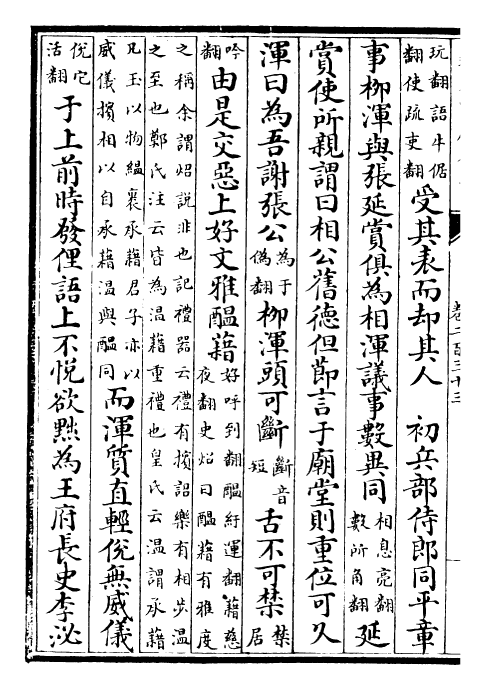 玩翻語牛倨翻使疏吏翻受其表而却其人　初兵部侍郎同平章
事柳渾與張延賞俱為相渾議事數異同相息亮翻數所角翻延
賞使所親謂曰相公舊德但節言于廟堂則重位可久
渾曰為吾謝張公為于偽翻柳渾頭可斷斷音短舌不可禁禁居
吟翻由是交惡上好文雅醖藉好呼到翻醖紆運翻藉慈夜翻史炤曰醖藉有雅度
之稱余謂炤説非也記禮器云禮有擯詔樂有相步温之至也鄭氏注云皆為温藉重禮也皇氏云温謂承藉
凡玉以物緼裹承藉君子亦以威儀擯相以自承藉温與醖同而渾質直輕侻無威儀
侻它活翻于上前時發俚語上不悦欲黜為王府長史李泌
卷二百三十三